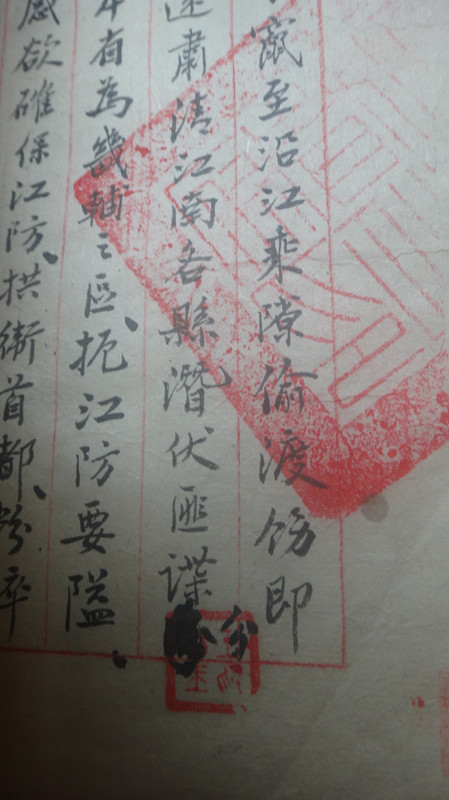 竄至沿江乘隙偷渡飭即
速肅清江南各縣潛伏匪諜
本省為畿輔之區、扼江防要隘、
感欲確保江防、拱衛首都、